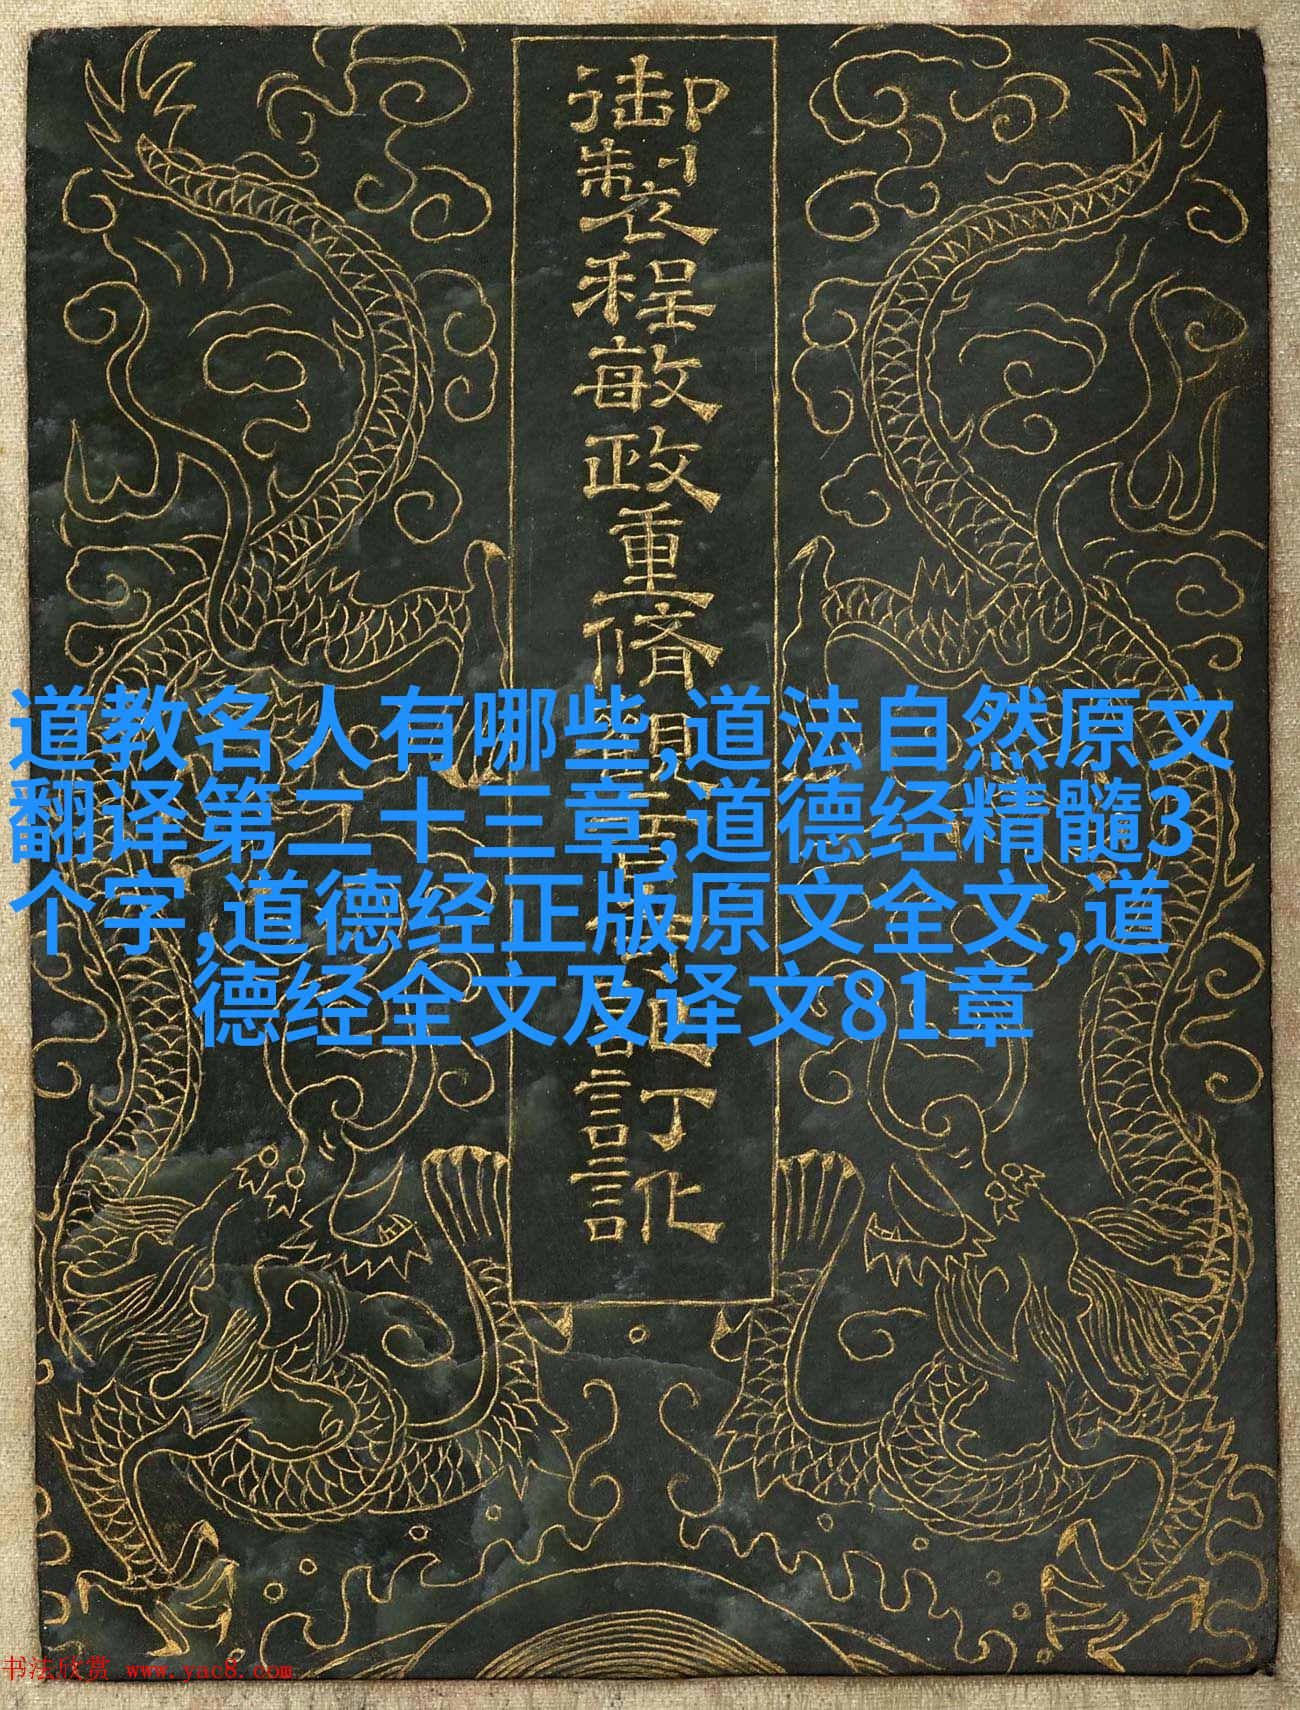 御製程敏政重脩
訂訛
道教名人有哪些,道法自然原文
翻译第二十三章,道德经精髓3
个字,道德经正版原文全文,道
德经全文及译文81章
书法欣赏 www.yac8.com